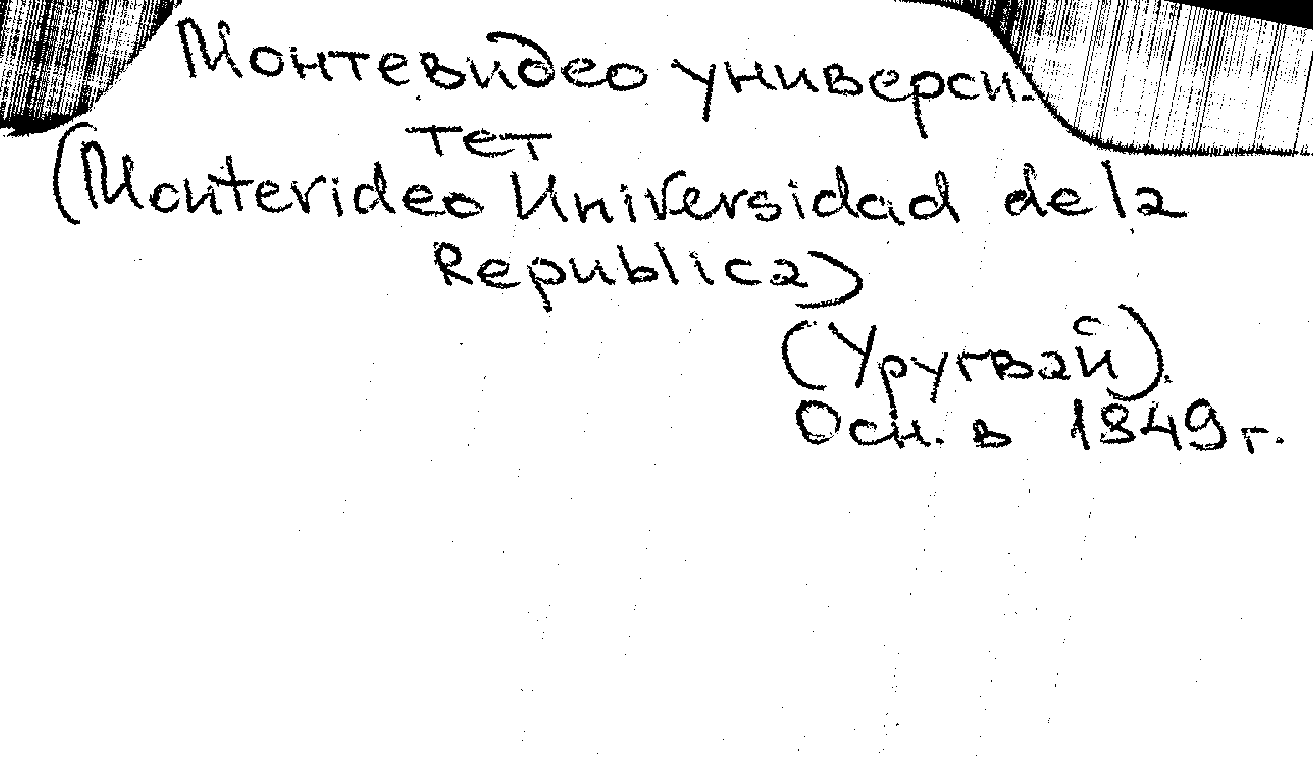 Монтевидео универси-
тет
(Montevideo Universidad de la
Republica)
(Уругвай).
Осн. в 1849 г.